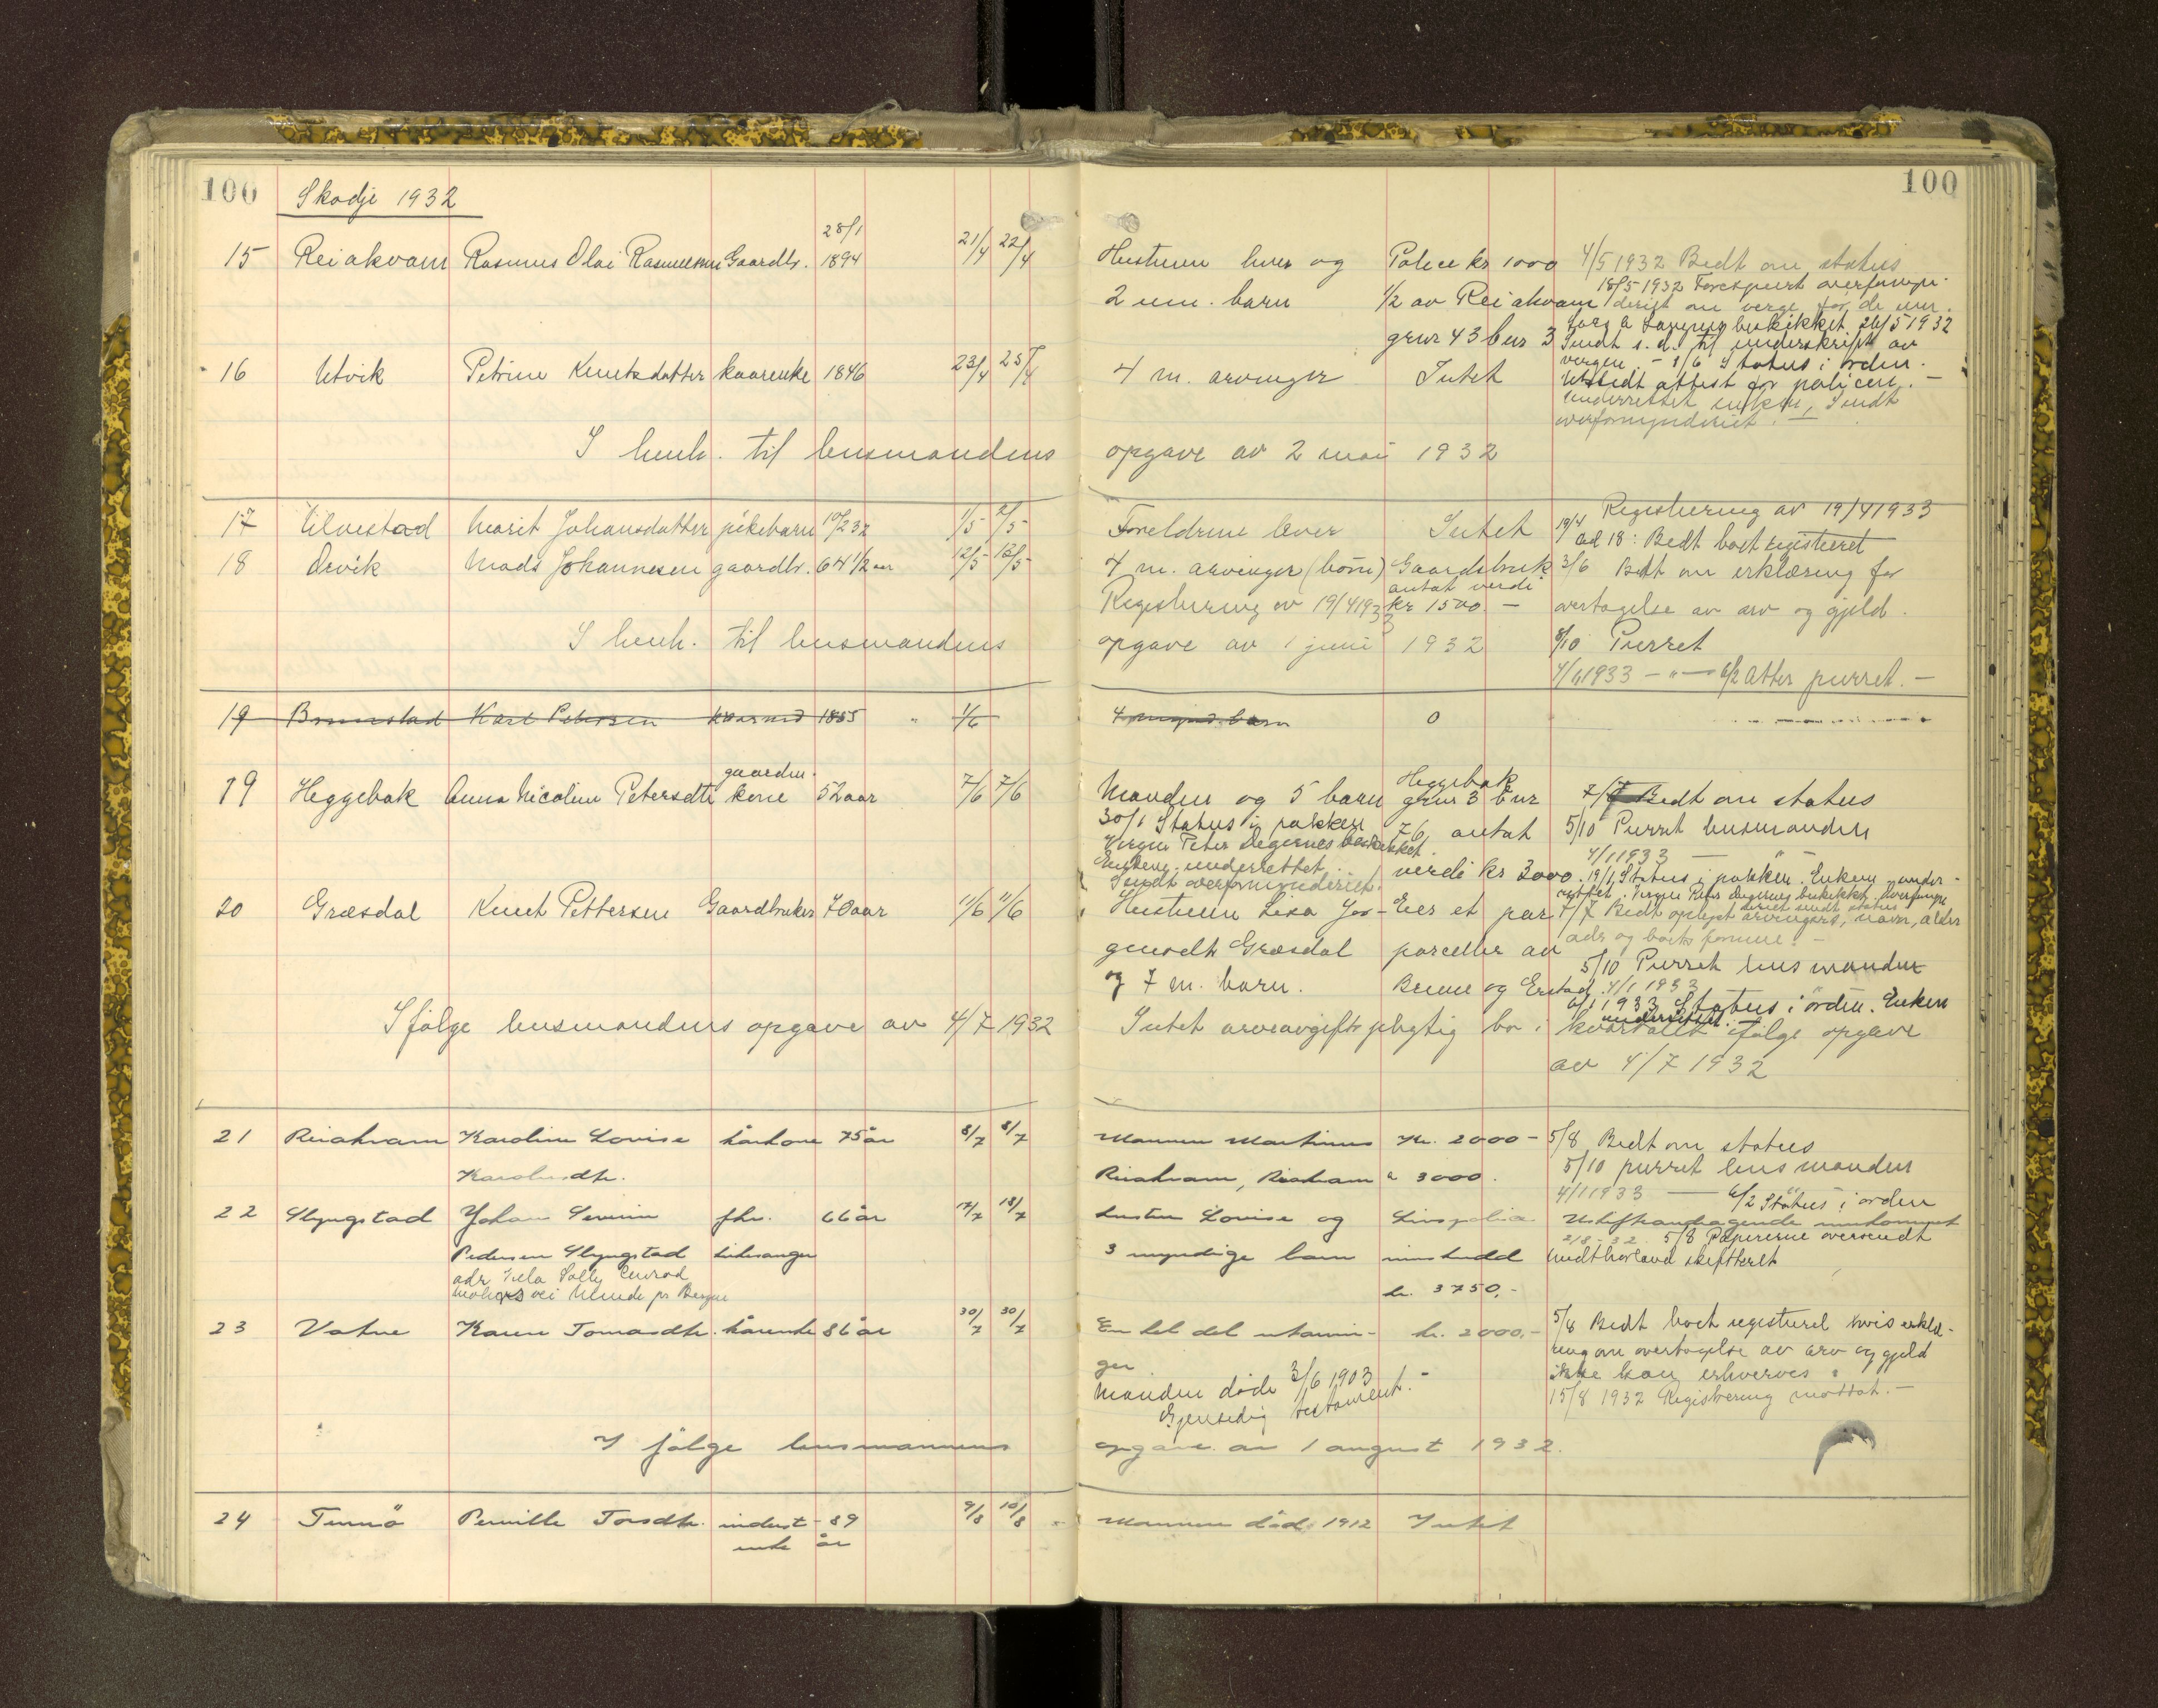 100
Skodje 1932
15 Reiakvam Rasmus Olai Rasmussen Gaardbr. 28/1 1894 21/4 22/4
16 Utvik Petrine Knutsdatter kaarenke 1846 23/4 25/4
I henh. til lensmandens
17 Ulvestad Marit Johansdatter pikebarn 10/2 32 1/5 2/5
18 Orvik Mads Johannesen gaardbr. 64 1/2 aar 12/5 13/5
I henh. til lensmandens
19 Brunstad Karl Petersen kaarmd 1855 " 1/6
19 Heggebak Anna Nicoline Petersdtr gaardm. kone 52 aar 7/6 7/6
20 Græsdal Knut Pettersen Gaardbruker 70 aar 11/6 11/6
Ifølge lensmandens opgave av 4/7 1932
21 Reiakvam Karoline Lovise kårkone 75 år 8/7 8/7
Karolusdtr.
22 Slyngstad Johan Severin fhv. 66 år 17/7 18/7
Pedersen Slyngstad kirkesanger
23 Vatne Karen Tomasdtr. kårenke 86 år 30/7 30/7
I følge lensmannens
24 Tennø Pernille Torsdtr. inderst- 89 9/8 10/8
enke år
100
Hustruen lever og Police kr 1000 4/5 1932 Bedt om status
2 um. barn 1/2 av Reiakvam 18/5 1932 Forespurt overformyn-
deriet om verge for de um.
gnr 43 bnr 3 Sendt s.d. til underskrift av
vergen. - 8/6 Status i orden.
4 m. arvinger Intet Utstedt attest for policen. -
underrettet enken, Sendt
overformynderiet. -
opgave av 2 mai 1932
Registrering av 19/4 1933
Foreldrene lever Intet 19/4 ad 18: Bedt boet registreret
4 m. arvinger (børn) Gaardsbruk 3/6 Bedt om erklæring for
antat verdi
Registrering av 19/4 1933 kr 1500 - overtagelse av arv og gjeld.
opgave av 1 juni 1932 8/10 Purret
4/1 1933 - " - 6/2 Atter purret. -
4 mynd. barn 0
Manden og 5 barn Heggebak gnr 3 bnr 7/7 Bedt om status
30/1 Status i pakken 76, antat 5/10 Purret lensmanden
Vergen Peter Degernes beskikket. 4/1 1933 - " -
Enken underrettet. verdi kr 3000. 19/1 Status i pakken. Enken under-
Sendt overformynderiet.
Hustruen Lisa Jør- Eier et par 7/7 Bedt oplyst arvingers, navn, alder
adr og boets formue. -
gensdtr Græsdal parceller av 5/10 Purret lensmanden
og 7 m. barn. Brune og Erstad. 4/1 1933
6/1 1933 Status i orden. Enken
underrettet.
Intet arveavgiftspligtig bo i kvartalet ifølge opgave
av 4/7 1932
Mannen Martinus Kr. 2000 - 5/8 Bedt om status
Reiakvam, Reiakvam " 3000. 5/10 purret lensmanden
4/1 1933 - " 6/2 Status i orden
Enken Lovise og Livspolise
3 myndige barn innskudd 2/8 - 32. 5/8 Papirerne oversendt
Midthorland skifterett
kr. 3750.-
En hel del utarvin- kr. 2000.- 5/8 Bedt boet registreret hvis erklæ-
ger ring om overtagelse av arv og gjeld
Manden døde 3/6 1903 ikke kan erhverves.
Gjensidig testament. - 15/8 1932 Registrering mottat. -
opgave av 1 august 1932.
Mannen død 1912 Intet